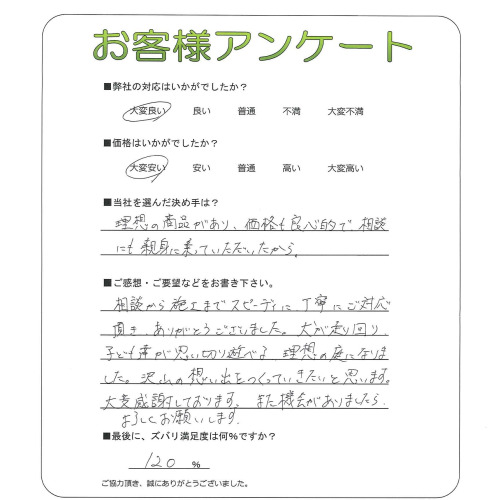 お客様アンケート
■弊社の対応はいかがでしたか？
大変良い 良い 普通 不満 大変不満
■価格はいかがでしたか？
大変安い 安い 普通 高い 大変高い
■当社を選んだ決め手は？
理想の商品があり、価格も良心的で、相談
にも親身に乗っていただいたから。
■ご感想・ご要望などをお書き下さい。
相談から施工までスピーディに、丁寧にご対応
頂き、ありがとうございました。犬が走り回り、
子ども達が思い切り遊べる、理想の庭になりま
した。沢山の想い出をつくっていきたいと思います。
大変感謝しております。また機会がありましたら、
よろしくお願いします。
■最後に、ズバリ満足度は何%ですか？
120 %
ご協力頂き、誠にありがとうございました。